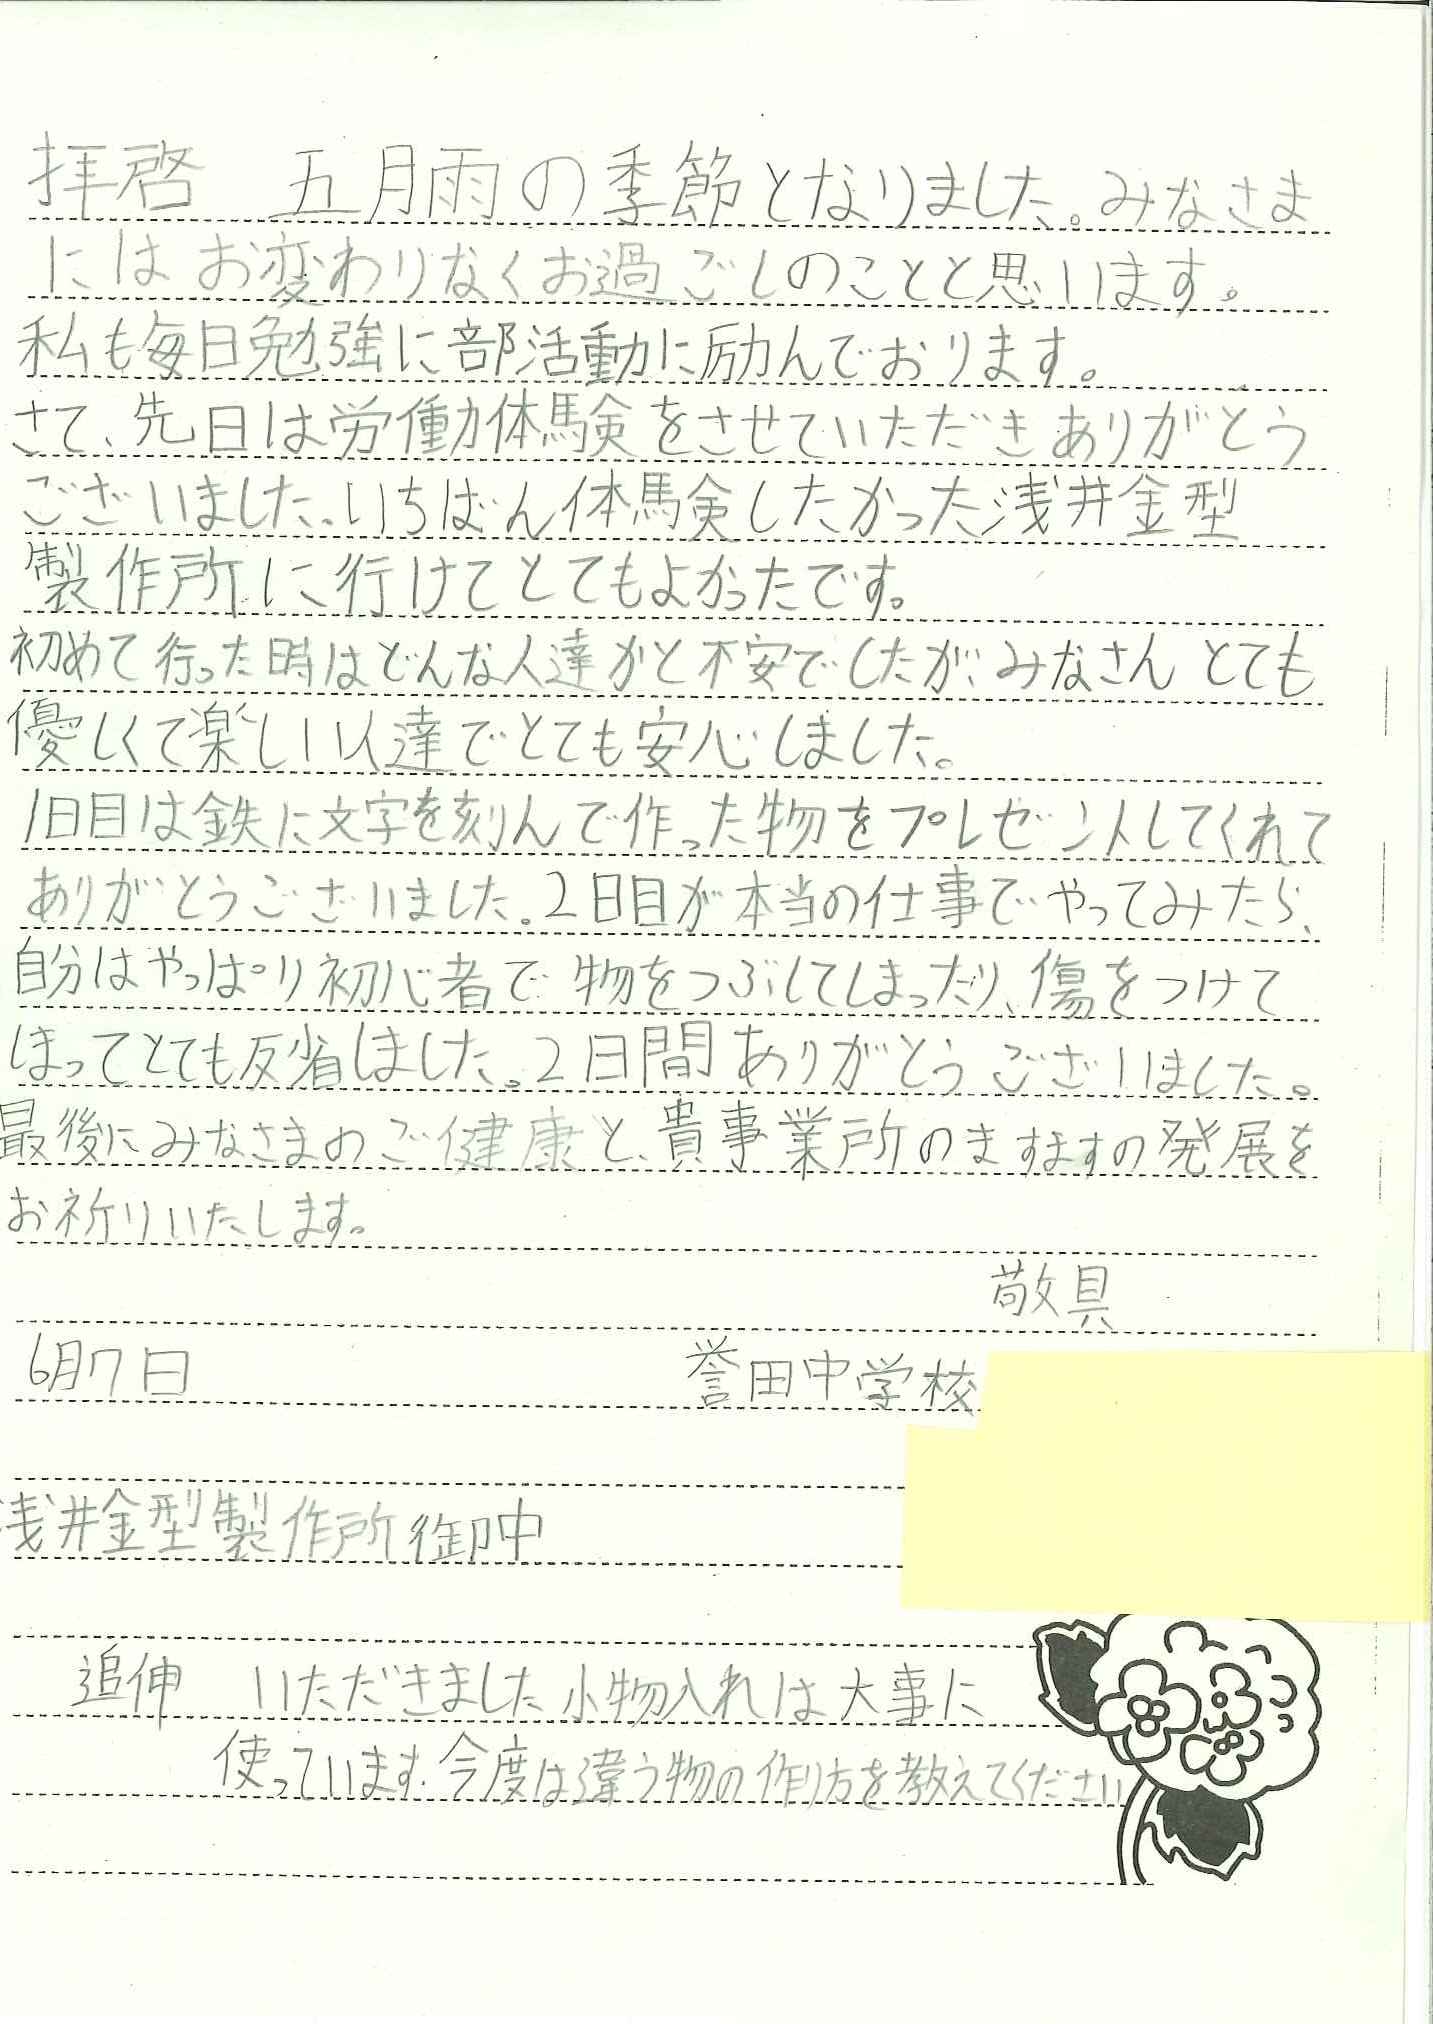 拝啓　五月雨の季節となりました。みなさま
にはお変わりなくお過ごしのことと思います。
私も毎日勉強に部活動に励んでおります。
さて、先日は労働体験をさせていただきありがとう
ございました。いちばん体験したかった浅井金型
製作所に行けてとてもよかったです。
初めて行った時はどんな人達かと不安でしたが、みなさんとても
優しくて楽しい人達でとても安心しました。
1日目は鉄に文字を刻んで作った物をプレゼントしてくれて
ありがとうございました。2日目が本当の仕事でやってみたら、
自分はやっぱり初心者で物をつぶしてしまったり、傷をつけて
しまってとても反省しました。2日間ありがとうございました。
最後にみなさまのご健康と、貴事業所のますますの発展を
お祈りいたします。
敬具
6月7日　誉田中学校
浅井金型製作所御中
追伸　いただきました小物入れは大事に
使っています。今度は違う物の作り方を教えてください